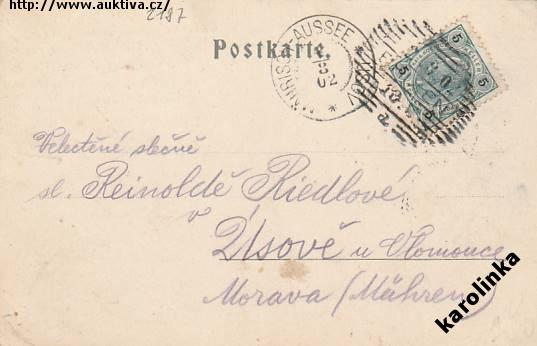 http://www.auktiva.cz/
2187
Postkarte.
MÄHRISCH-AUSSEE
5
5
5
Velectěné slečně
sl. Reinoldě Riedlové
v
Úsově u Olomouce
Morava (Mähren)
karolinka